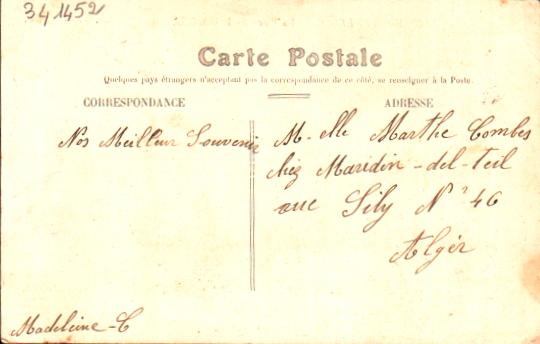 341452
Carte Postale
Quelques pays étrangers n'acceptant pas la correspondance de ce côté, se renseigner à la Poste.
CORRESPONDANCE
ADRESSE
Nos Meilleur Souvenir
M-elle Marthe Combes
chez Maridin-del-teil
rue Sily N° 46
Alger
Madeleine-C